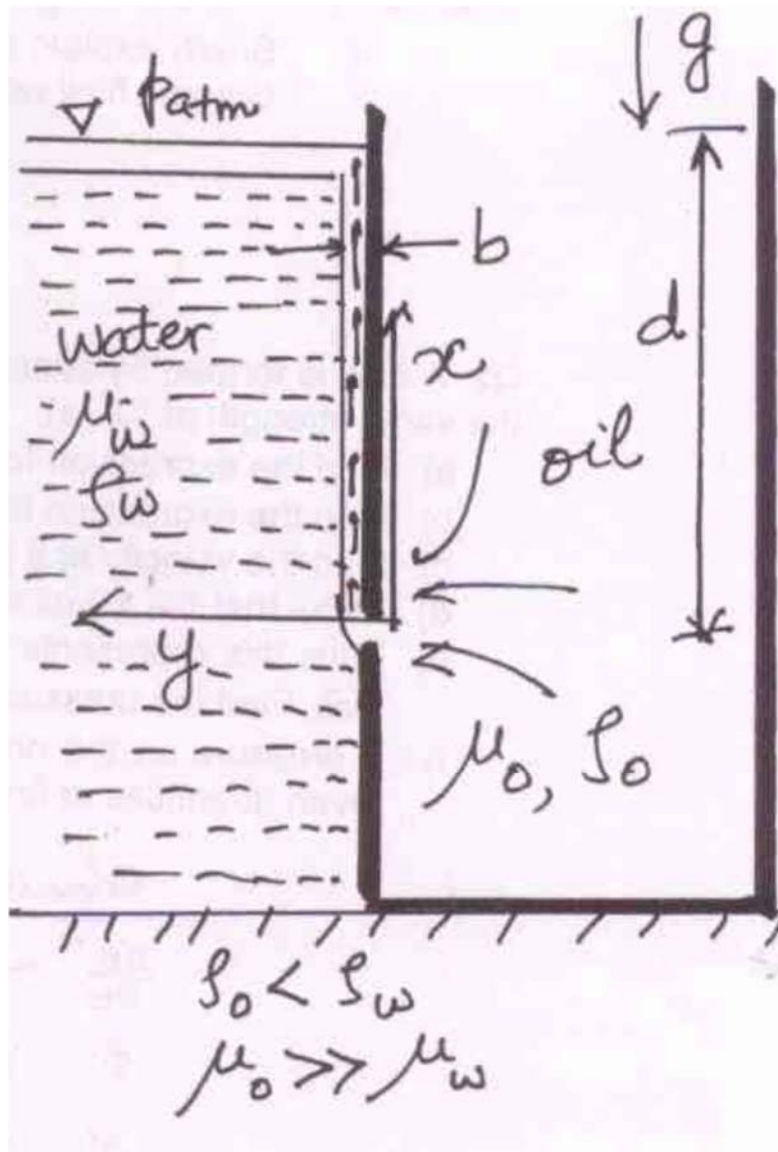 ▽ Patm
g
b
d
water
x
μw
oil
ρw
y
μo, ρo
ρo < ρw
μo >> μw